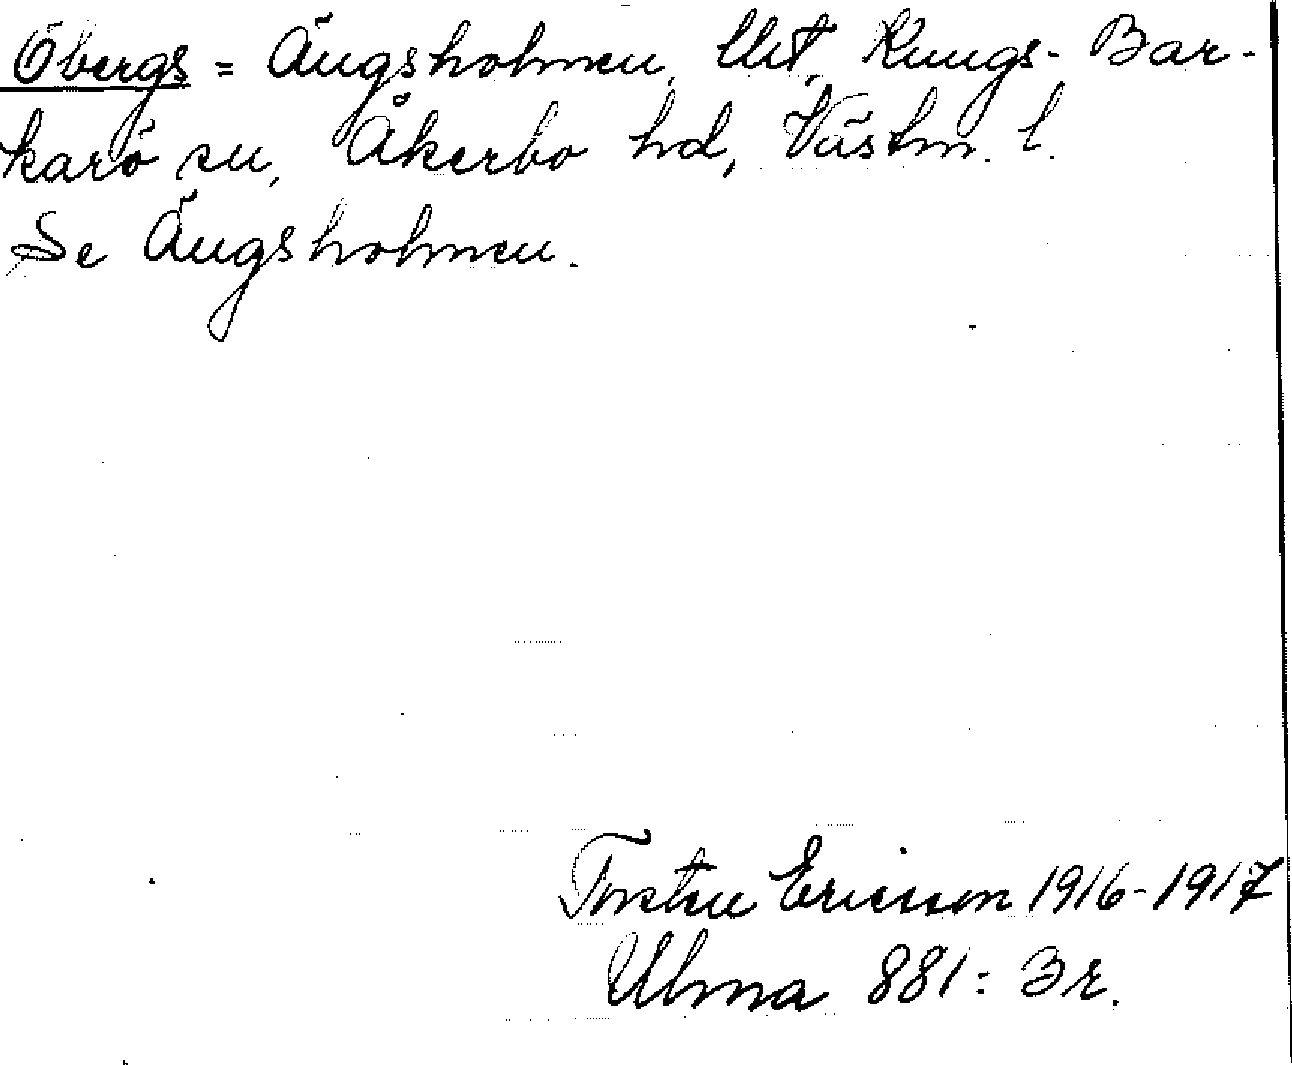 Öbergs = Ängsholmen, lht, Kungs-Bar-
karö sn, Åkerbo hd, Västm. l.
Se Ängsholmen.
Torsten Ericsson 1916-1917
Ulma 881: 3 r.